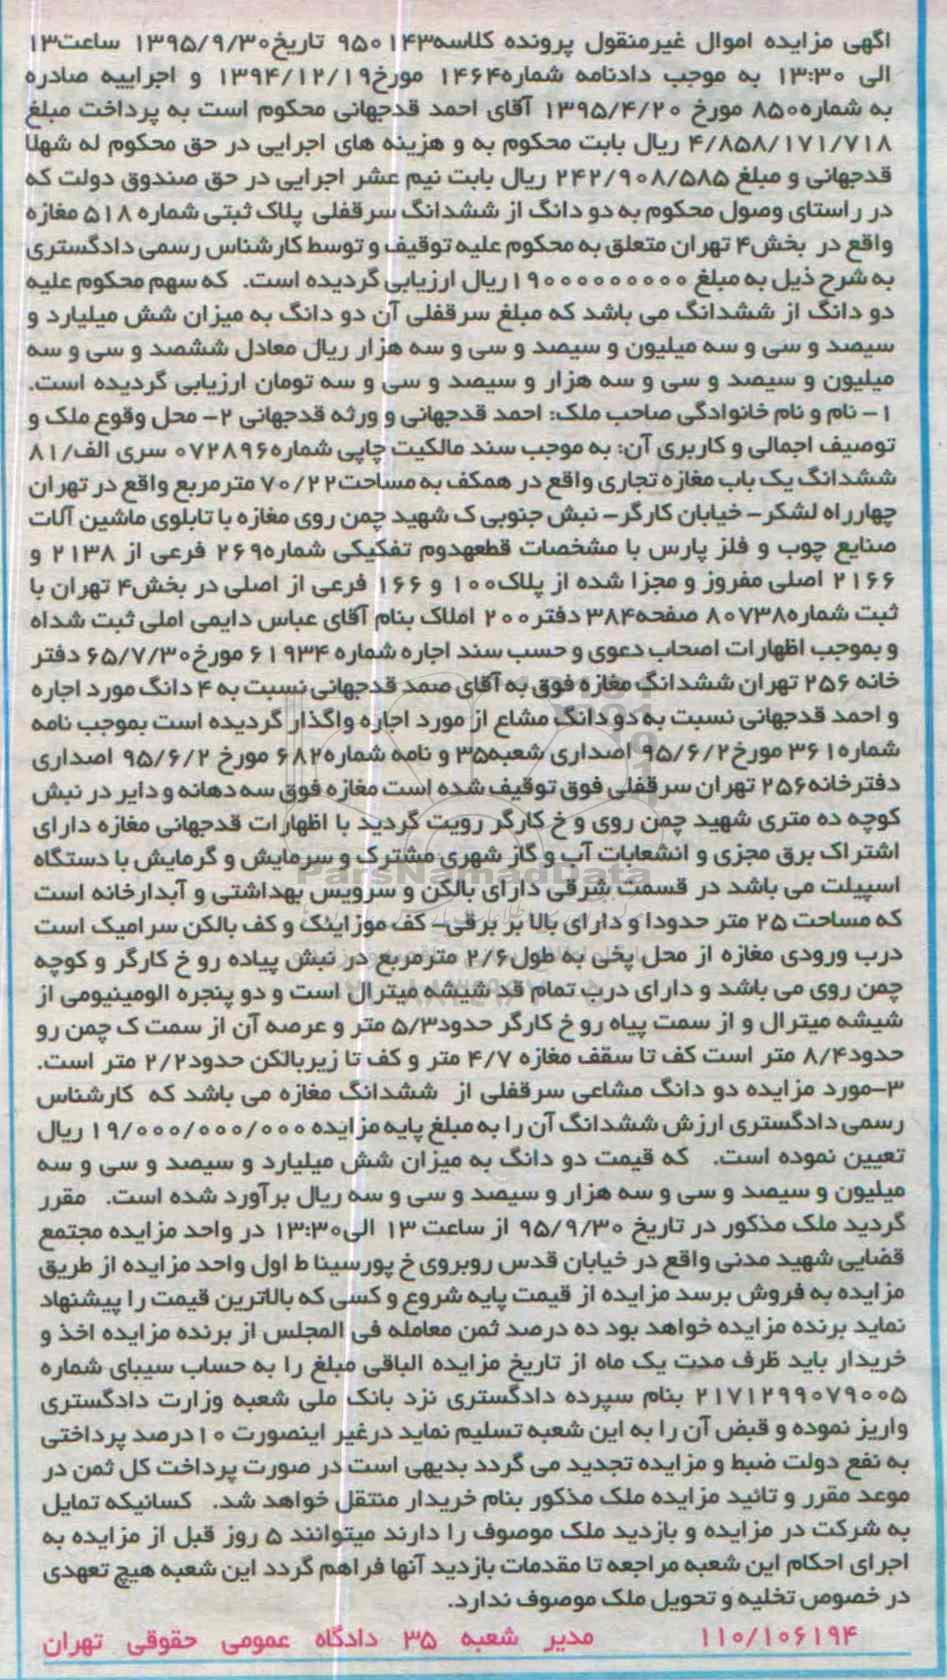 آگهی مزایده اموال غیرمنقول پرونده کلاسه۹۵۰۱۴۳ تاریخ۱۳۹۵/۹/۳۰ ساعت۱۳
الی ۱۳:۳۰ به موجب دادنامه شماره۱۴۶۴ مورخ۱۳۹۴/۱۲/۱۹ و اجراییه صادره
به شماره۸۵۰ مورخ ۱۳۹۵/۴/۲۰ آقای احمد قدجهانی محکوم است به پرداخت مبلغ
۴/۸۵۸/۱۷۱/۷۱۸ ریال بابت محکوم به و هزینه های اجرایی در حق محکوم له شهلا
قدجهانی و مبلغ ۲۴۲/۹۰۸/۵۸۵ ریال بابت نیم عشر اجرایی در حق صندوق دولت که
در راستای وصول محکوم به دو دانگ از ششدانگ سرقفلی پلاک ثبتی شماره ۵۱۸ مغازه
واقع در بخش۴ تهران متعلق به محکوم علیه توقیف و توسط کارشناس رسمی دادگستری
به شرح ذیل به مبلغ ۱۹۰۰۰۰۰۰۰۰۰ ریال ارزیابی گردیده است. که سهم محکوم علیه
دو دانگ از ششدانگ می باشد که مبلغ سرقفلی آن دو دانگ به میزان شش میلیارد و
سیصد و سی و سه میلیون و سیصد و سی و سه هزار ریال معادل ششصد و سی و سه
میلیون و سیصد و سی و سه هزار و سیصد و سی و سه تومان ارزیابی گردیده است.
۱- نام و نام خانوادگی صاحب ملک: احمد قدجهانی و ورثه قدجهانی ۲- محل وقوع ملک و
توصیف اجمالی و کاربری آن: به موجب سند مالکیت چاپی شماره۰۷۲۸۹۶ سری الف/۸۱
ششدانگ یک باب مغازه تجاری واقع در همکف به مساحت۷۰/۲۲ مترمربع واقع در تهران
چهارراه لشکر- خیابان کارگر- نبش جنوبی ک شهید چمن روی مغازه با تابلوی ماشین آلات
صنایع چوب و فلز پارس با مشخصات قطعهدوم تفکیکی شماره۲۶۹ فرعی از ۲۱۳۸ و
۲۱۶۶ اصلی مفروز و مجزا شده از پلاک۱۰۰ و ۱۶۶ فرعی از اصلی در بخش۴ تهران با
ثبت شماره۸۰۷۳۸ صفحه۳۸۴ دفتر۲۰۰ املاک بنام آقای عباس دایمی املی ثبت شداه
و بموجب اظهارات اصحاب دعوی و حسب سند اجاره شماره ۶۱۹۳۴ مورخ۶۵/۷/۳۰ دفتر
خانه ۲۵۶ تهران ششدانگ مغازه فوق به آقای صمد قدجهانی نسبت به ۴ دانگ مورد اجاره
و احمد قدجهانی نسبت به دو دانگ مشاع از مورد اجاره واگذار گردیده است بموجب نامه
شماره۳۶۱ مورخ۹۵/۶/۲ اصداری شعبه۳۵ و نامه شماره۶۸۲ مورخ ۹۵/۶/۲ اصداری
دفترخانه۲۵۶ تهران سرقفلی فوق توقیف شده است مغازه فوق سه دهانه و دایر در نبش
کوچه ده متری شهید چمن روی و خ کارگر رویت گردید با اظهارات قدجهانی مغازه دارای
اشتراک برق مجزی و انشعابات آب و گاز شهری مشترک و سرمایش و گرمایش با دستگاه
اسپیلت می باشد در قسمت شرقی دارای بالکن و سرویس بهداشتی و آبدارخانه است
که مساحت ۲۵ متر حدودا و دارای بالا بر برقی- کف موزاینک و کف بالکن سرامیک است
درب ورودی مغازه از محل پخی به طول۲/۶ مترمربع در نبش پیاده رو خ کارگر و کوچه
چمن روی می باشد و دارای درب تمام قد شیشه میترال است و دو پنجره الومینیومی از
شیشه میترال و از سمت پیاه رو خ کارگر حدود۵/۳ متر و عرصه آن از سمت ک چمن رو
حدود۸/۴ متر است کف تا سقف مغازه ۴/۷ متر و کف تا زیربالکن حدود۲/۲ متر است.
۳-مورد مزایده دو دانگ مشاعی سرقفلی از ششدانگ مغازه می باشد که کارشناس
رسمی دادگستری ارزش ششدانگ آن را به مبلغ پایه مزایده ۱۹/۰۰۰/۰۰۰/۰۰۰ ریال
تعیین نموده است. که قیمت دو دانگ به میزان شش میلیارد و سیصد و سی و سه
میلیون و سیصد و سی و سه هزار و سیصد و سی و سه ریال برآورد شده است. مقرر
گردید ملک مذکور در تاریخ ۹۵/۹/۳۰ از ساعت ۱۳ الی۱۳:۳۰ در واحد مزایده مجتمع
قضایی شهید مدنی واقع در خیابان قدس روبروی خ پورسینا ط اول واحد مزایده از طریق
مزایده به فروش برسد مزایده از قیمت پایه شروع و کسی که بالاترین قیمت را پیشنهاد
نماید برنده مزایده خواهد بود ده درصد ثمن معامله فی المجلس از برنده مزایده اخذ و
خریدار باید ظرف مدت یک ماه از تاریخ مزایده الباقی مبلغ را به حساب سیبای شماره
۲۱۷۱۲۹۹۰۷۹۰۰۵ بنام سپرده دادگستری نزد بانک ملی شعبه وزارت دادگستری
واریز نموده و قبض آن را به این شعبه تسلیم نماید درغیر اینصورت ۱۰درصد پرداختی
به نفع دولت ضبط و مزایده تجدید می گردد بدیهی است در صورت پرداخت کل ثمن در
موعد مقرر و تائید مزایده ملک مذکور بنام خریدار منتقل خواهد شد. کسانیکه تمایل
به شرکت در مزایده و بازدید ملک موصوف را دارند میتوانند ۵ روز قبل از مزایده به
اجرای احکام این شعبه مراجعه تا مقدمات بازدید آنها فراهم گردد این شعبه هیچ تعهدی
در خصوص تخلیه و تحویل ملک موصوف ندارد.
۱۱۰/۱۰۶۱۹۴ مدیر شعبه ۳۵ دادگاه عمومی حقوقی تهران
ParsNamadData